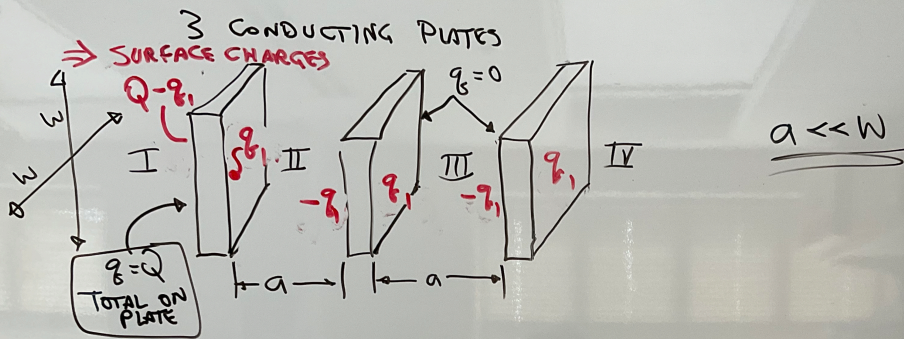 3 CONDUCTING PLATES
⇒ SURFACE CHARGES
Q-q₁
q=0
W
W
I
q₁
II
-q₁
q₁
III
-q₁
q₁
IV
a << W
q=Q
TOTAL ON
PLATE
a
a